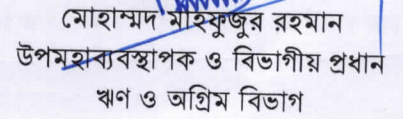 মোহাম্মদ মাহফুজুর রহমান
উপমহাব্যবস্থাপক ও বিভাগীয় প্রধান
ঋণ ও অগ্রিম বিভাগ